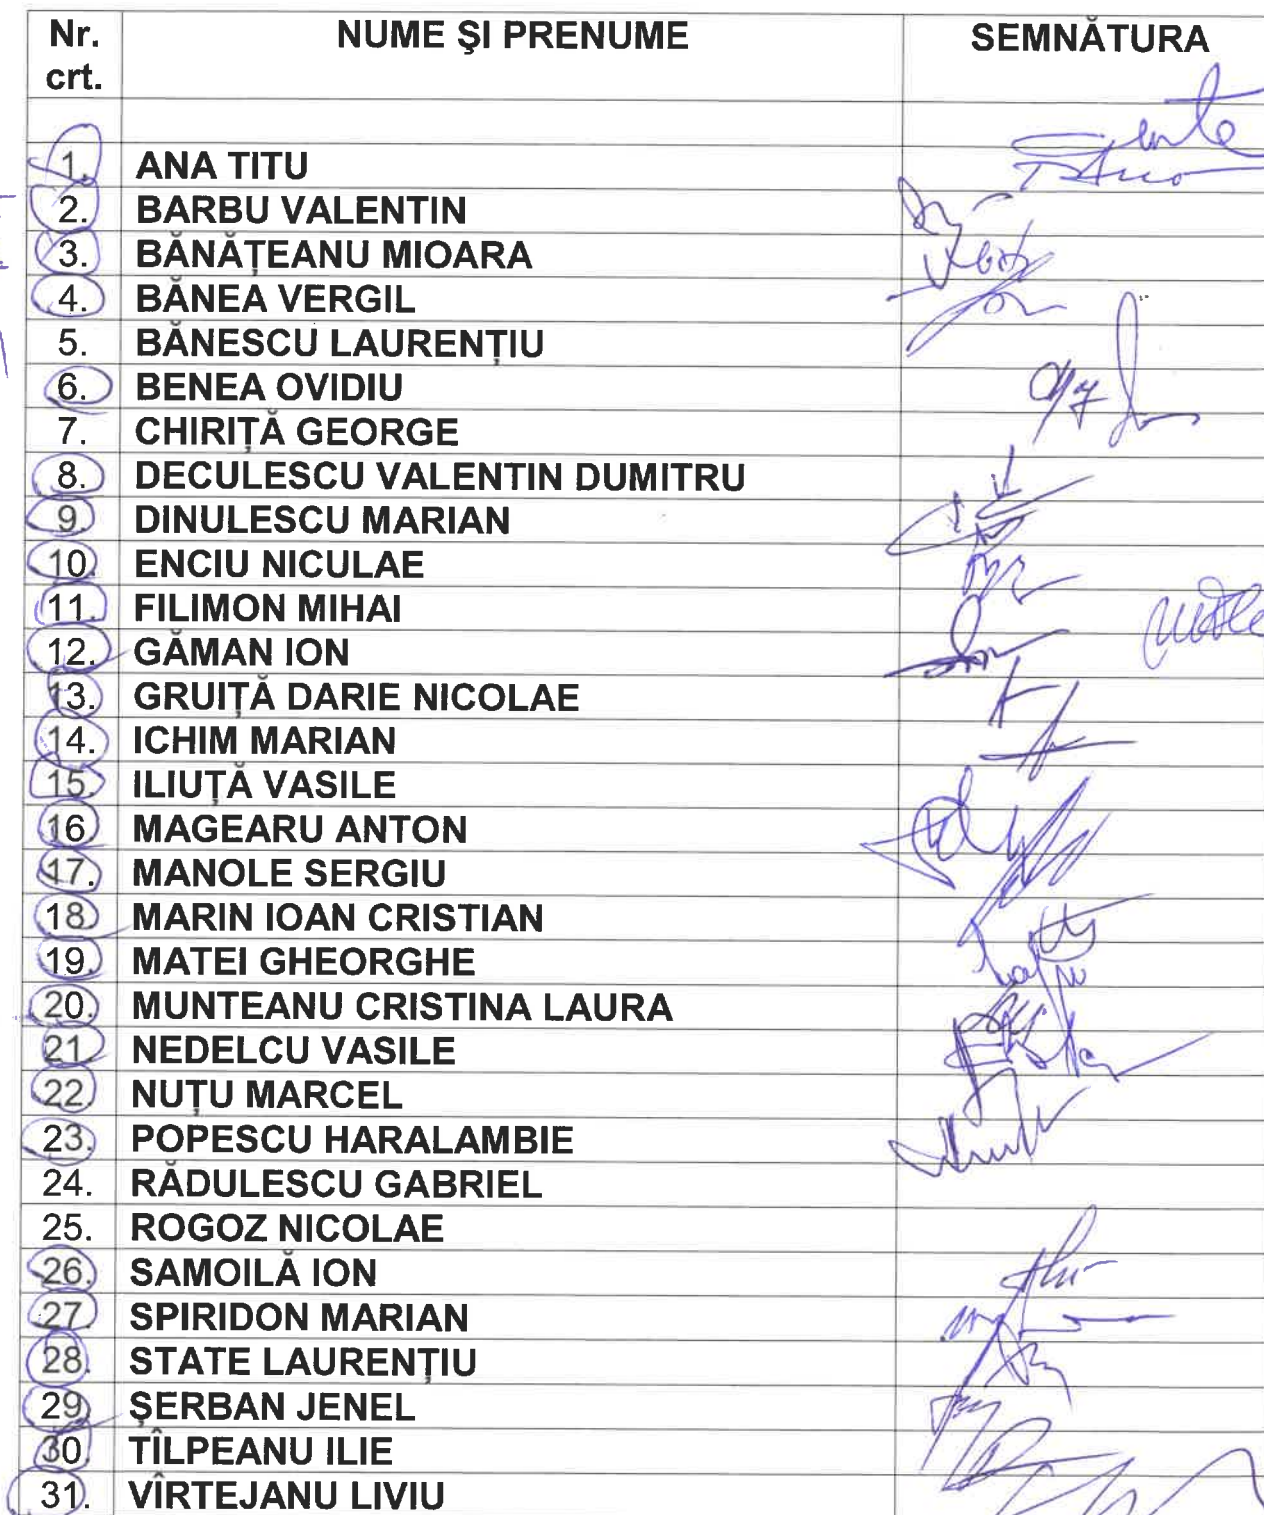 Nr. crt. NUME ŞI PRENUME SEMNĂTURA
1. ANA TITU
2. BARBU VALENTIN
3. BĂNĂŢEANU MIOARA
4. BĂNEA VERGIL
5. BĂNESCU LAURENŢIU
6. BENEA OVIDIU
7. CHIRIŢĂ GEORGE
8. DECULESCU VALENTIN DUMITRU
9. DINULESCU MARIAN
10. ENCIU NICULAE
11. FILIMON MIHAI
12. GĂMAN ION
13. GRUIŢĂ DARIE NICOLAE
14. ICHIM MARIAN
15. ILIUŢĂ VASILE
16. MAGEARU ANTON
17. MANOLE SERGIU
18. MARIN IOAN CRISTIAN
19. MATEI GHEORGHE
20. MUNTEANU CRISTINA LAURA
21. NEDELCU VASILE
22. NUŢU MARCEL
23. POPESCU HARALAMBIE
24. RĂDULESCU GABRIEL
25. ROGOZ NICOLAE
26. SAMOILĂ ION
27. SPIRIDON MARIAN
28. STATE LAURENŢIU
29. ŞERBAN JENEL
30. TÎLPEANU ILIE
31. VÎRTEJANU LIVIU